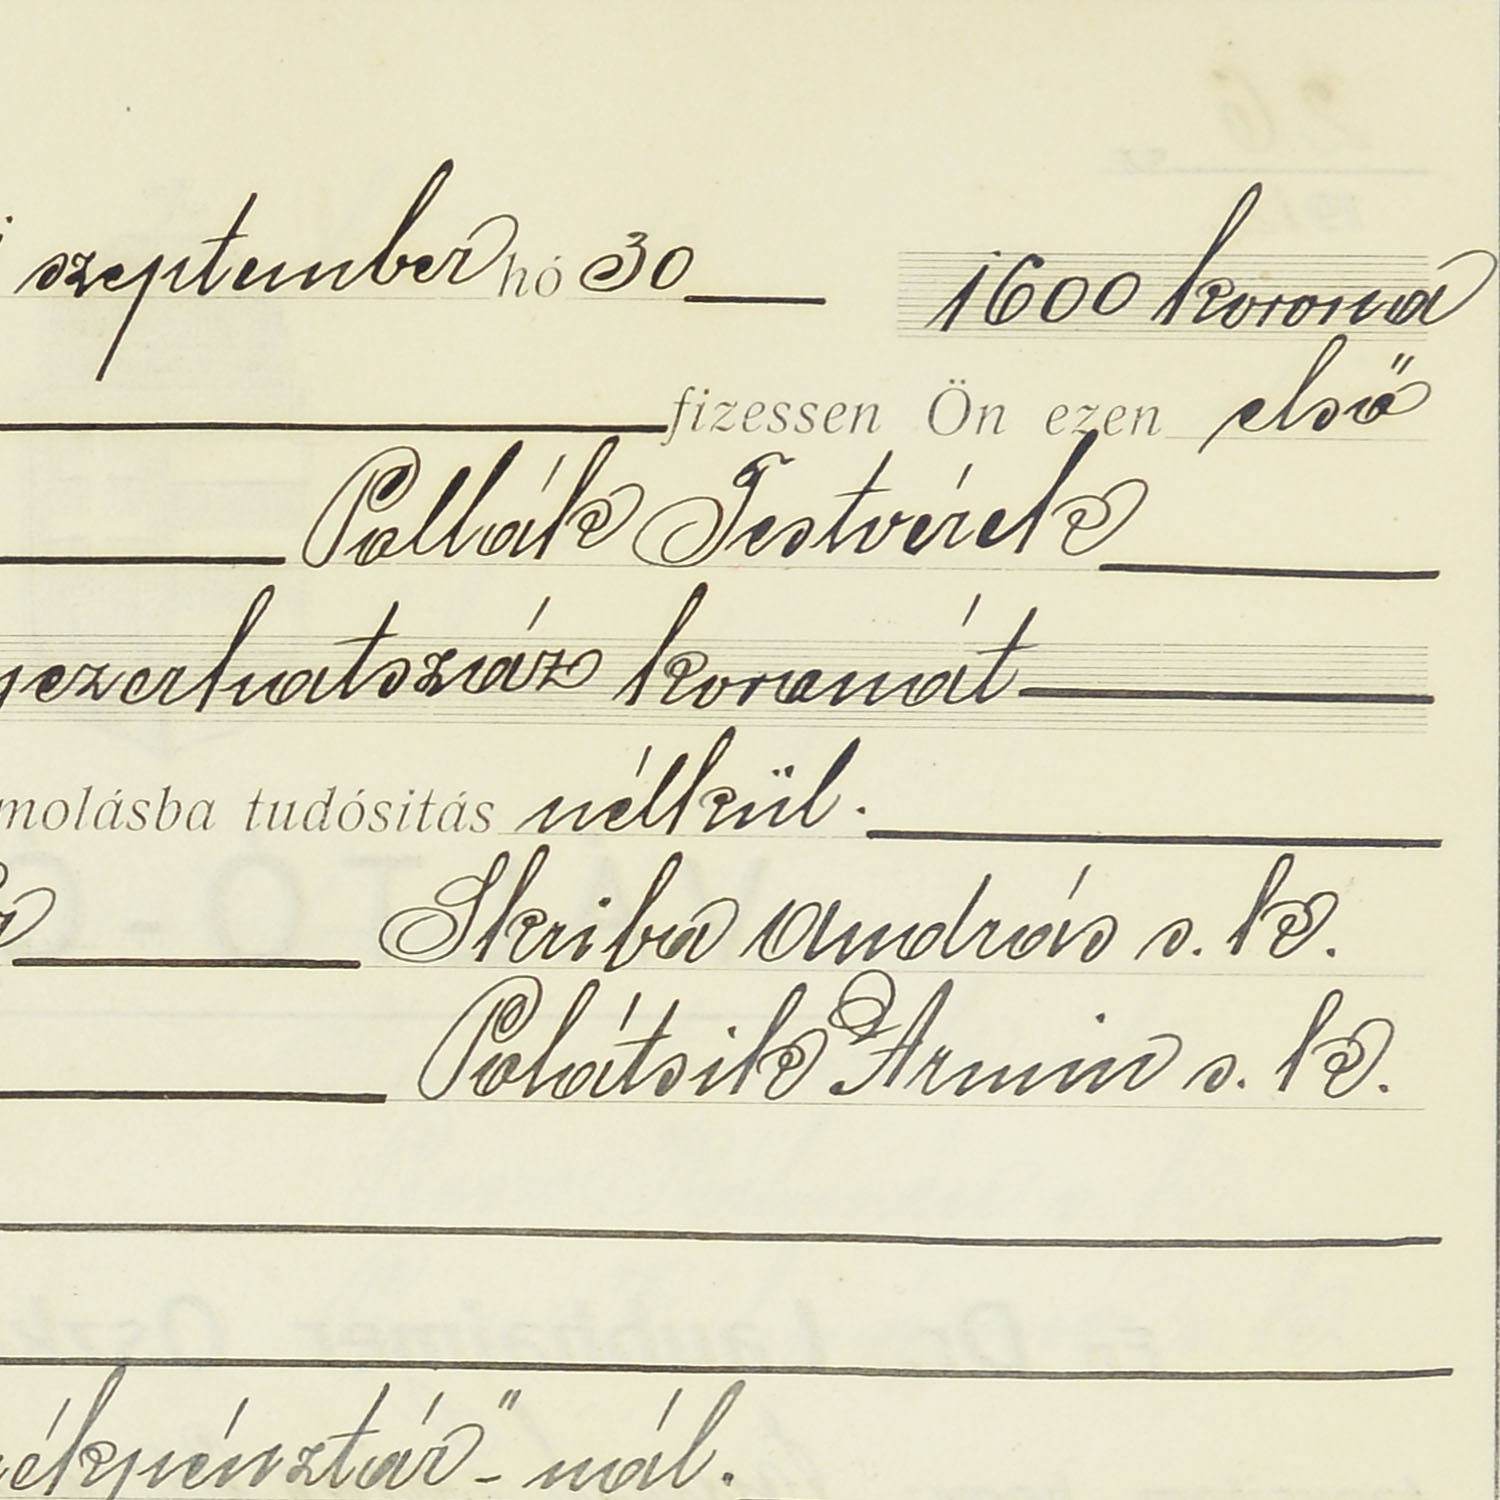 szeptember hó 30 1600 korona
fizessen Ön ezen első
Pollák Testvérek
ezerhatszáz koronát
molásba tudósitás nélkül.
Skriba András s. k.
Polátsik Ármin s. k.
ékpénztár"-nál.